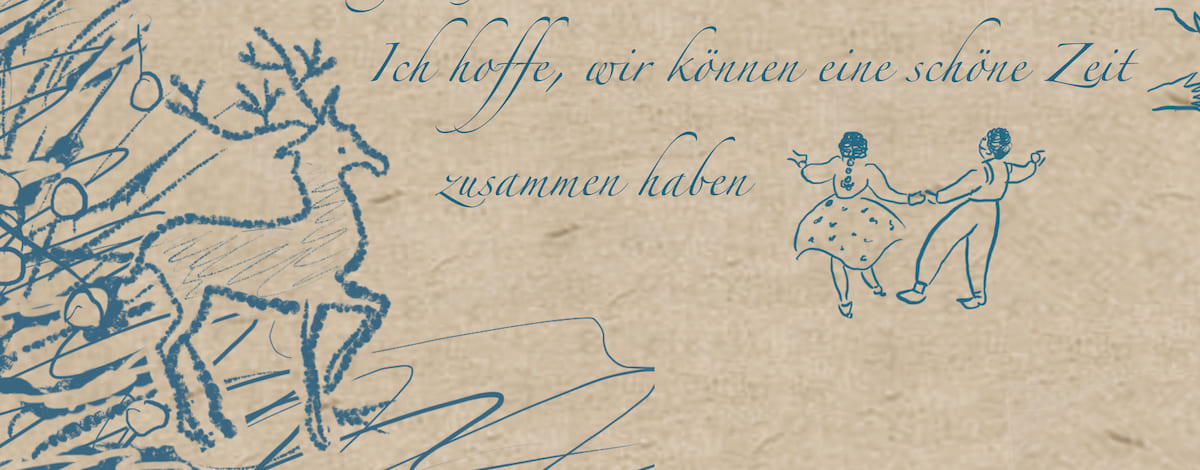 Ich hoffe, wir können eine schöne Zeit
zusammen haben